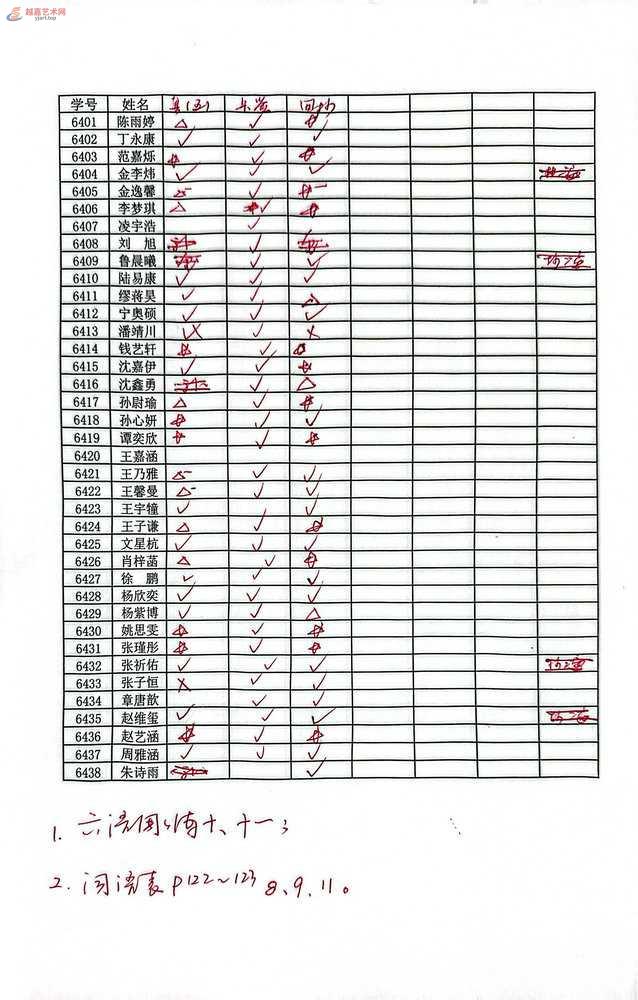 越嘉艺术网
yjart.top
学号 姓名
6401 陈雨婷 △ ✓ ☆
6402 丁永康 ✓ ✓ ✓
6403 范嘉烁 ☆ ✓ ☆
6404 金李炜 ✓ ✓ ✓
6405 金逸馨 △- ✓ ☆-
6406 李梦琪 △ ✓ ☆
6407 凌宇浩 ✓
6408 刘旭 ✓
6409 鲁晨曦 ✓ ✓
6410 陆易康 ✓ ✓ ✓
6411 缪蒋昊 ✓ ✓ △
6412 宁奥硕 ✓ ✓ ✓
6413 潘靖川 ✓✗ ✓ ✗
6414 钱艺轩 ☆ ✓ ☆
6415 沈嘉伊 ✓ ✓ ☆
6416 沈鑫勇 ✓ △
6417 孙尉瑜 △ ✓ ☆
6418 孙心妍 ☆ ✓ ✓
6419 谭奕欣 ☆ ✓ ☆
6420 王嘉涵
6421 王乃雅 △- ✓ ✓
6422 王馨曼 △- ✓ ✓
6423 王宇犝 ✓ ✓ ✓
6424 王子谦 △ ✓ ☆
6425 文星杭 ✓ ✓ ✓
6426 肖梓菡 △ ✓ ☆
6427 徐鹏 ✓ ✓ ✓
6428 杨欣奕 ✓ ✓ ✓
6429 杨紫博 ✓ ✓ △
6430 姚思雯 ☆ ✓ ☆
6431 张瑾彤 ☆ ✓ ☆
6432 张祈佑 ✓ ✓ ✓
6433 张子恒 ✗ ✓ ✓
6434 章唐歆 ✓ ✓
6435 赵维玺 ✓ ✓ ✓
6436 赵艺涵 ☆ ✓ ☆
6437 周雅涵 ✓ ✓ ✓
6438 朱诗雨 ✓
1. 六语 十、十一；
2. 词语表 P122~123 8、9、11。